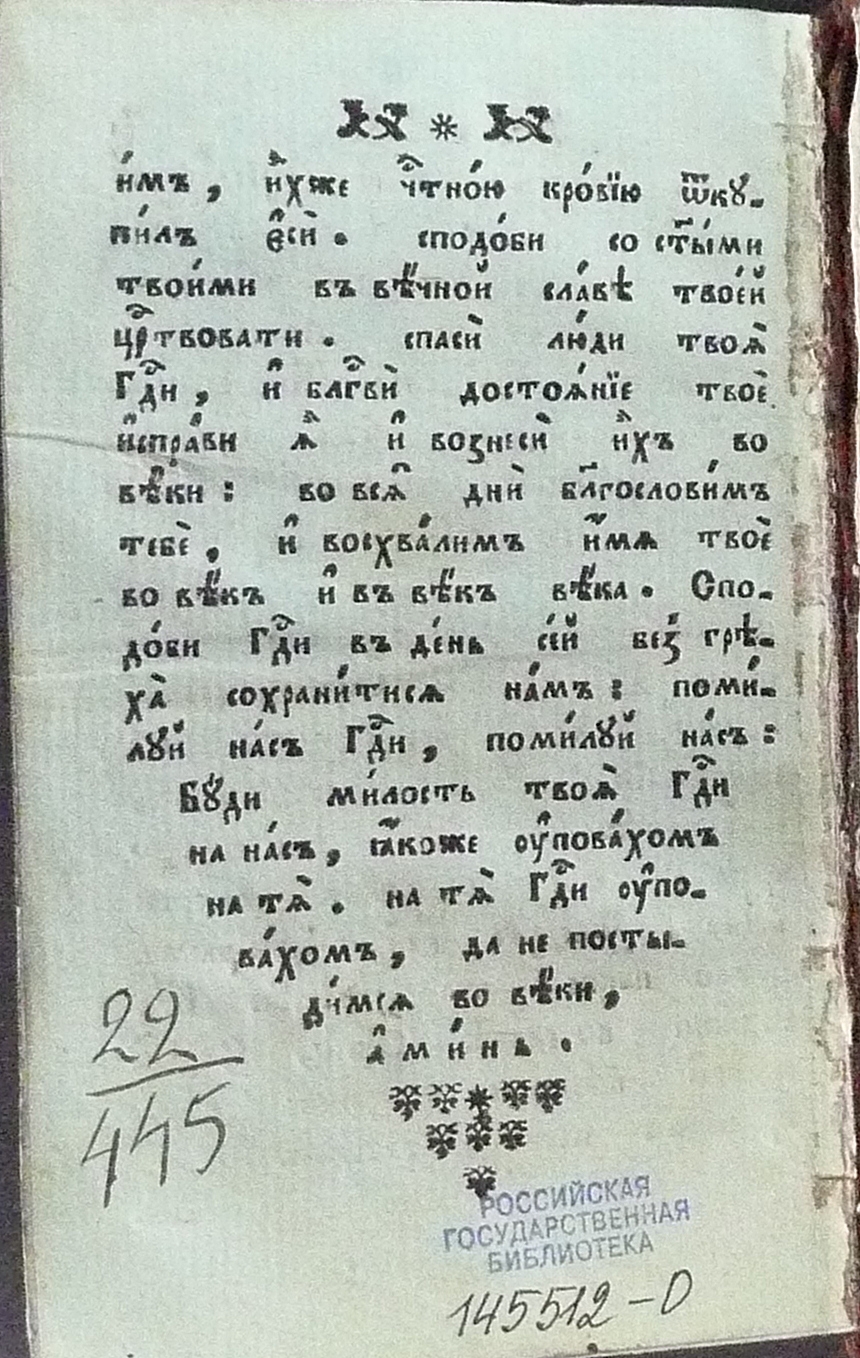 и́мъ, и҆̀хже чⷭ҇тно́ю кро́вїю ѿкꙋ-
пи́лъ є҆сѝ. сподо́би со ст҃ы́ми
твои́ми въ вѣ́чной сла́вѣ твое́й
црⷭ҇твовати. спасѝ лю́ди твоѧ̀
Гдⷭ҇и, и҆ блгⷭ҇вѝ достоѧ́нїе твоѐ
и҆спра́ви ѧ҆̀ и҆ вознесѝ и҆̀хъ во
вѣ́ки: во всѧ̑ днѝ бл҃гослови́мъ
тебѐ, и҆ восхва́лимъ и҆́мѧ твоѐ
во вѣ́къ и҆ въ вѣ́къ вѣ́ка. Спо-
до́би Гдⷭ҇и въ де́нь се́й без̾ грѣ-
ха̀ сохрани́тисѧ на́мъ: поми́-
лꙋй на́съ Гдⷭ҇и, поми́лꙋй на́съ:
Бꙋ́ди ми́лость твоѧ̀ Гдⷭ҇и
на на́съ, ꙗ҆́коже оу҆пова́хомъ
на тѧ̀. на тѧ̀ Гдⷭ҇и оу҆по-
ва́хомъ, да не посты-
ди́мсѧ во вѣ́ки,
а҆ми́нь.
22
445
РОССИЙСКАЯ
ГОСУДАРСТВЕННАЯ
БИБЛИОТЕКА
145512-О